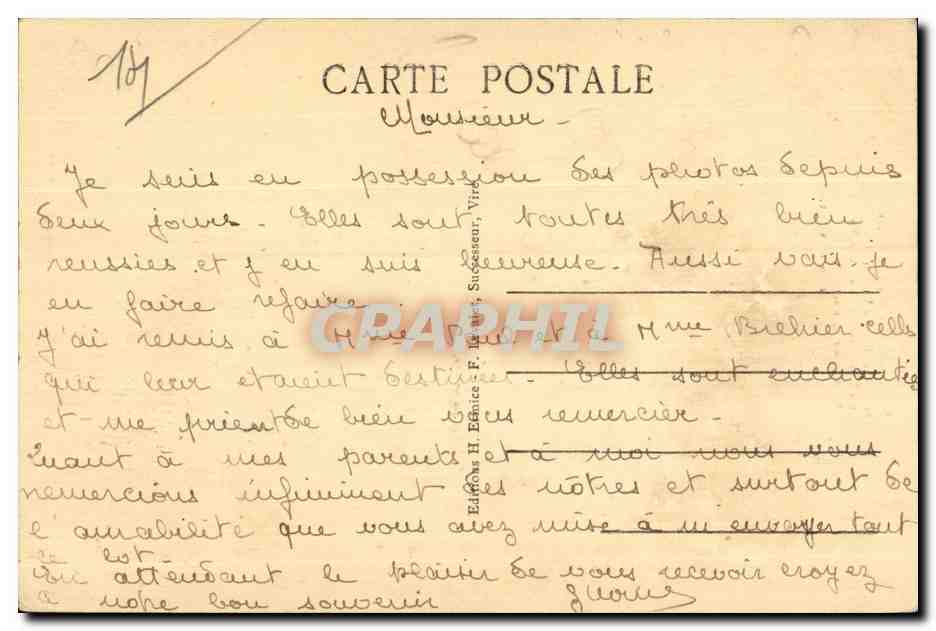 CARTE POSTALE
Monsieur -
Je suis en possession des photos depuis
deux jours. Elles sont toutes très bien
reussies et j'en suis heureuse. Aussi vais-je
en faire refaire.
CPAPHIL
J'ai remis à Mme et à Mme Brehier celles
qui leur etaient destinées. Elles sont enchantées
et me prient de bien vous remercier -
Quant à mes parents et à moi nous vous
remercions infiniment des nôtres et surtout de
l'amabilité que vous avez mise à m'envoyer tant
ce lot.
En attendant le plaisir de vous recevoir croyez
à notre bon souvenir
Editions H. Ermice - F. Successeur, Vire